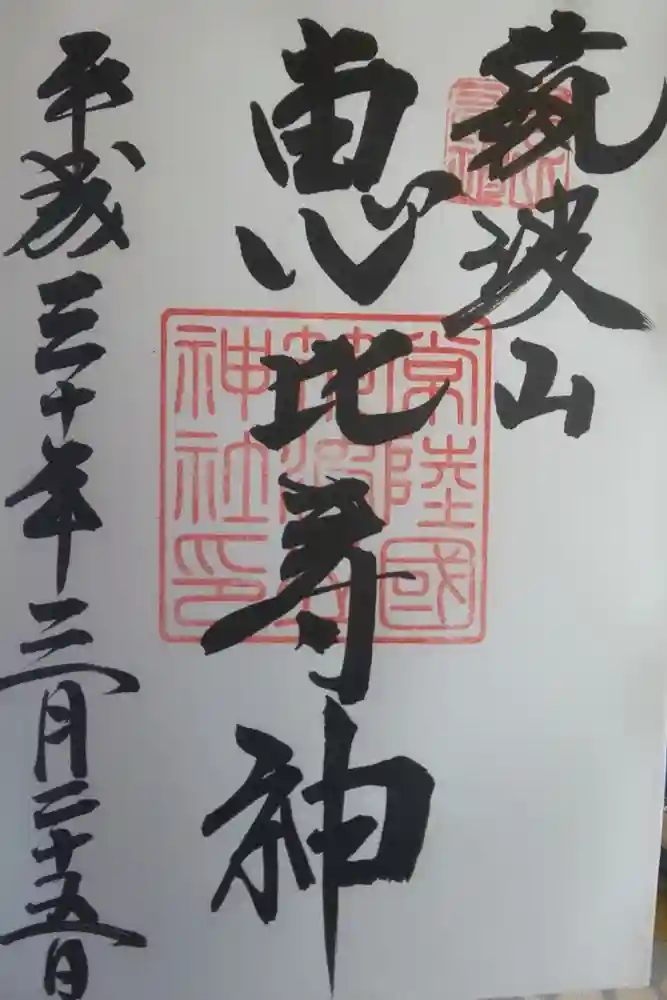 筑波山
恵比寿神
平成三十年三月二十五日
常陸國
神社印